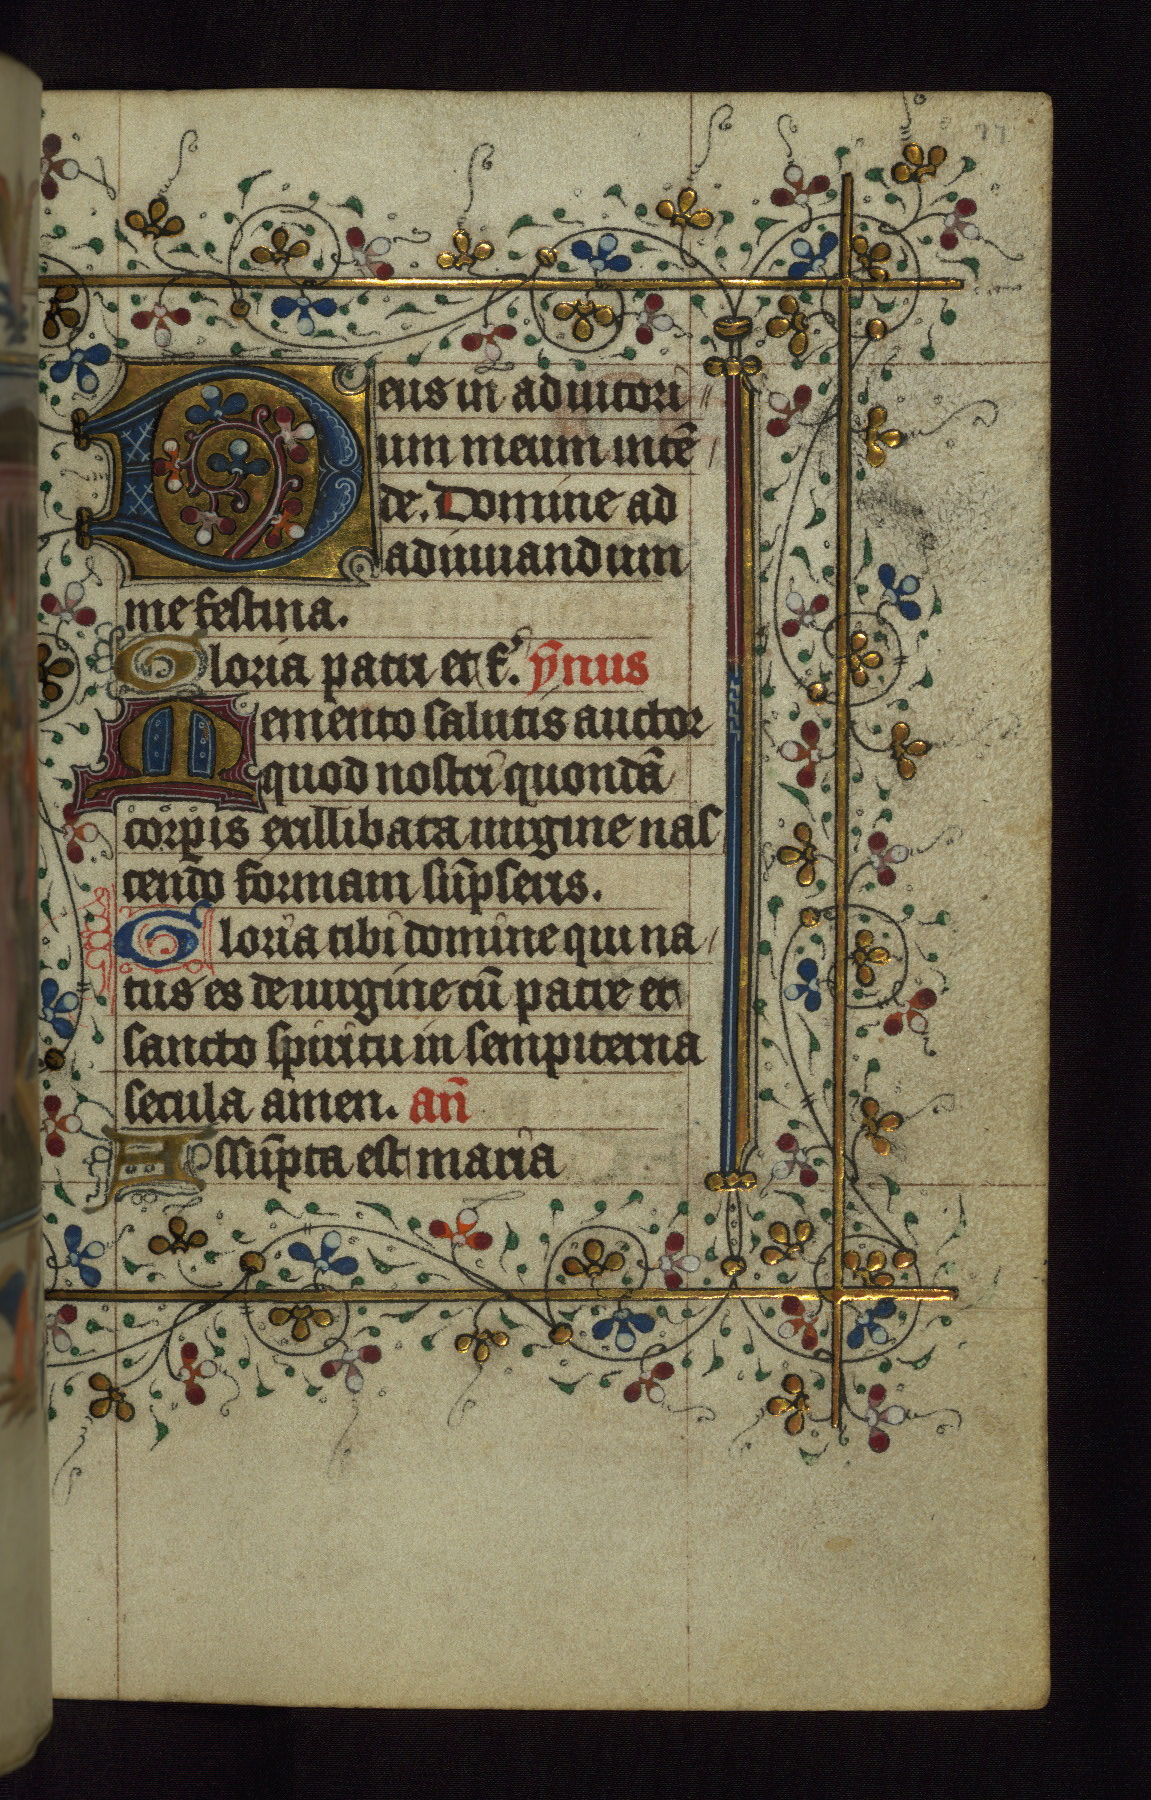 77
Deus in adiutori
um meum intē
de. Domine ad
adiuuandum
me festina.
Gloria patri et f. ȳnus
Memento salutis auctor
quod nostri quondā
corpis ex illibata uirgine nas
cendo formam sūpseris.
Gloria tibi domine qui na
tus es de uirgine cū patre et
sancto spiritu in sempiterna
secula amen. añ
Assūpta est maria